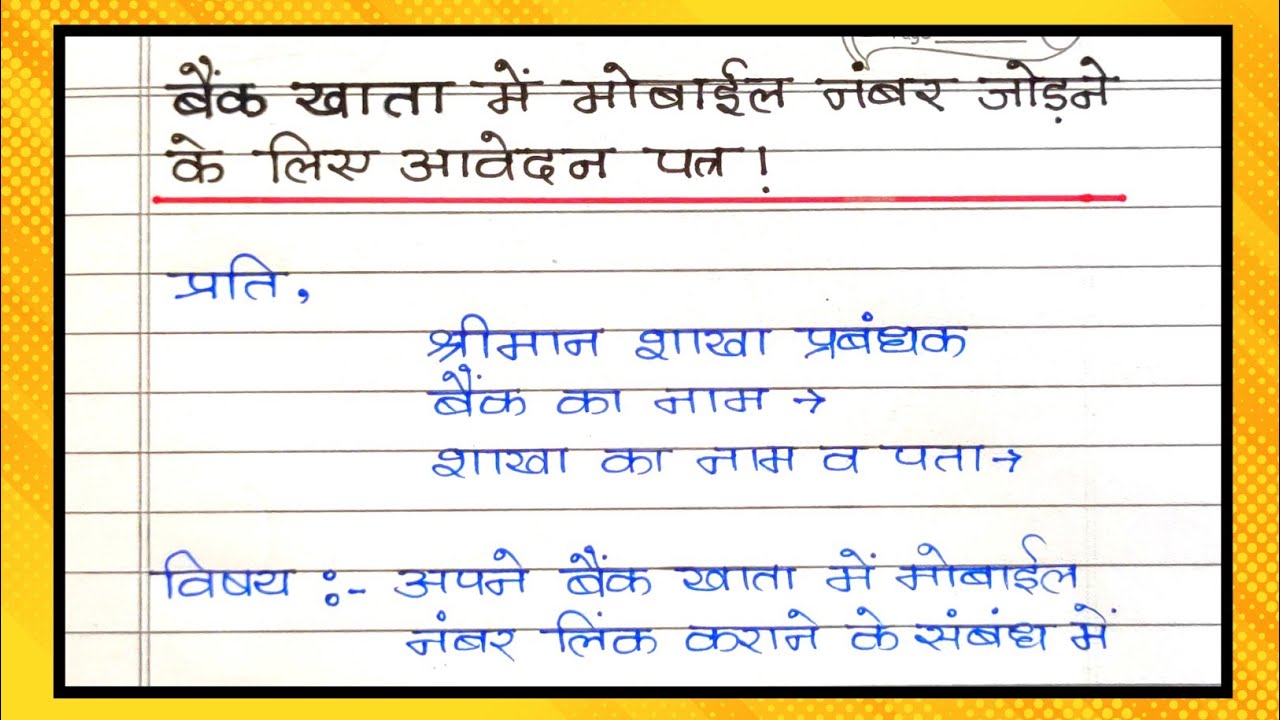 बैंक खाता में मोबाईल नंबर जोड़ने
के लिए आवेदन पत्र!
प्रति,
श्रीमान शाखा प्रबंधक
बैंक का नाम →
शाखा का नाम व पता →
विषय :- अपने बैंक खाता में मोबाईल
नंबर लिंक कराने के संबंध में